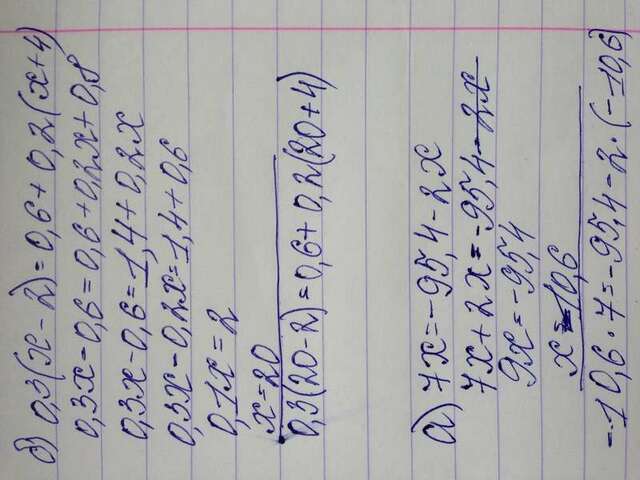 б) 0,3(x - 2) = 0,6 + 0,2(x+4)
0,3x - 0,6 = 0,6 + 0,2x + 0,8
0,3x - 0,6 = 1,4 + 0,2x
0,3x - 0,2x = 1,4 + 0,6
0,1x = 2
x = 20
0,3(20 - 2) = 0,6 + 0,2(20 + 4)
а) 7x = -95,4 - 2x
7x + 2x = -95,4 - 2x
9x = -95,4
x = -10,6
-10,6 · 7 = -95,4 - 2 · (-10,6)